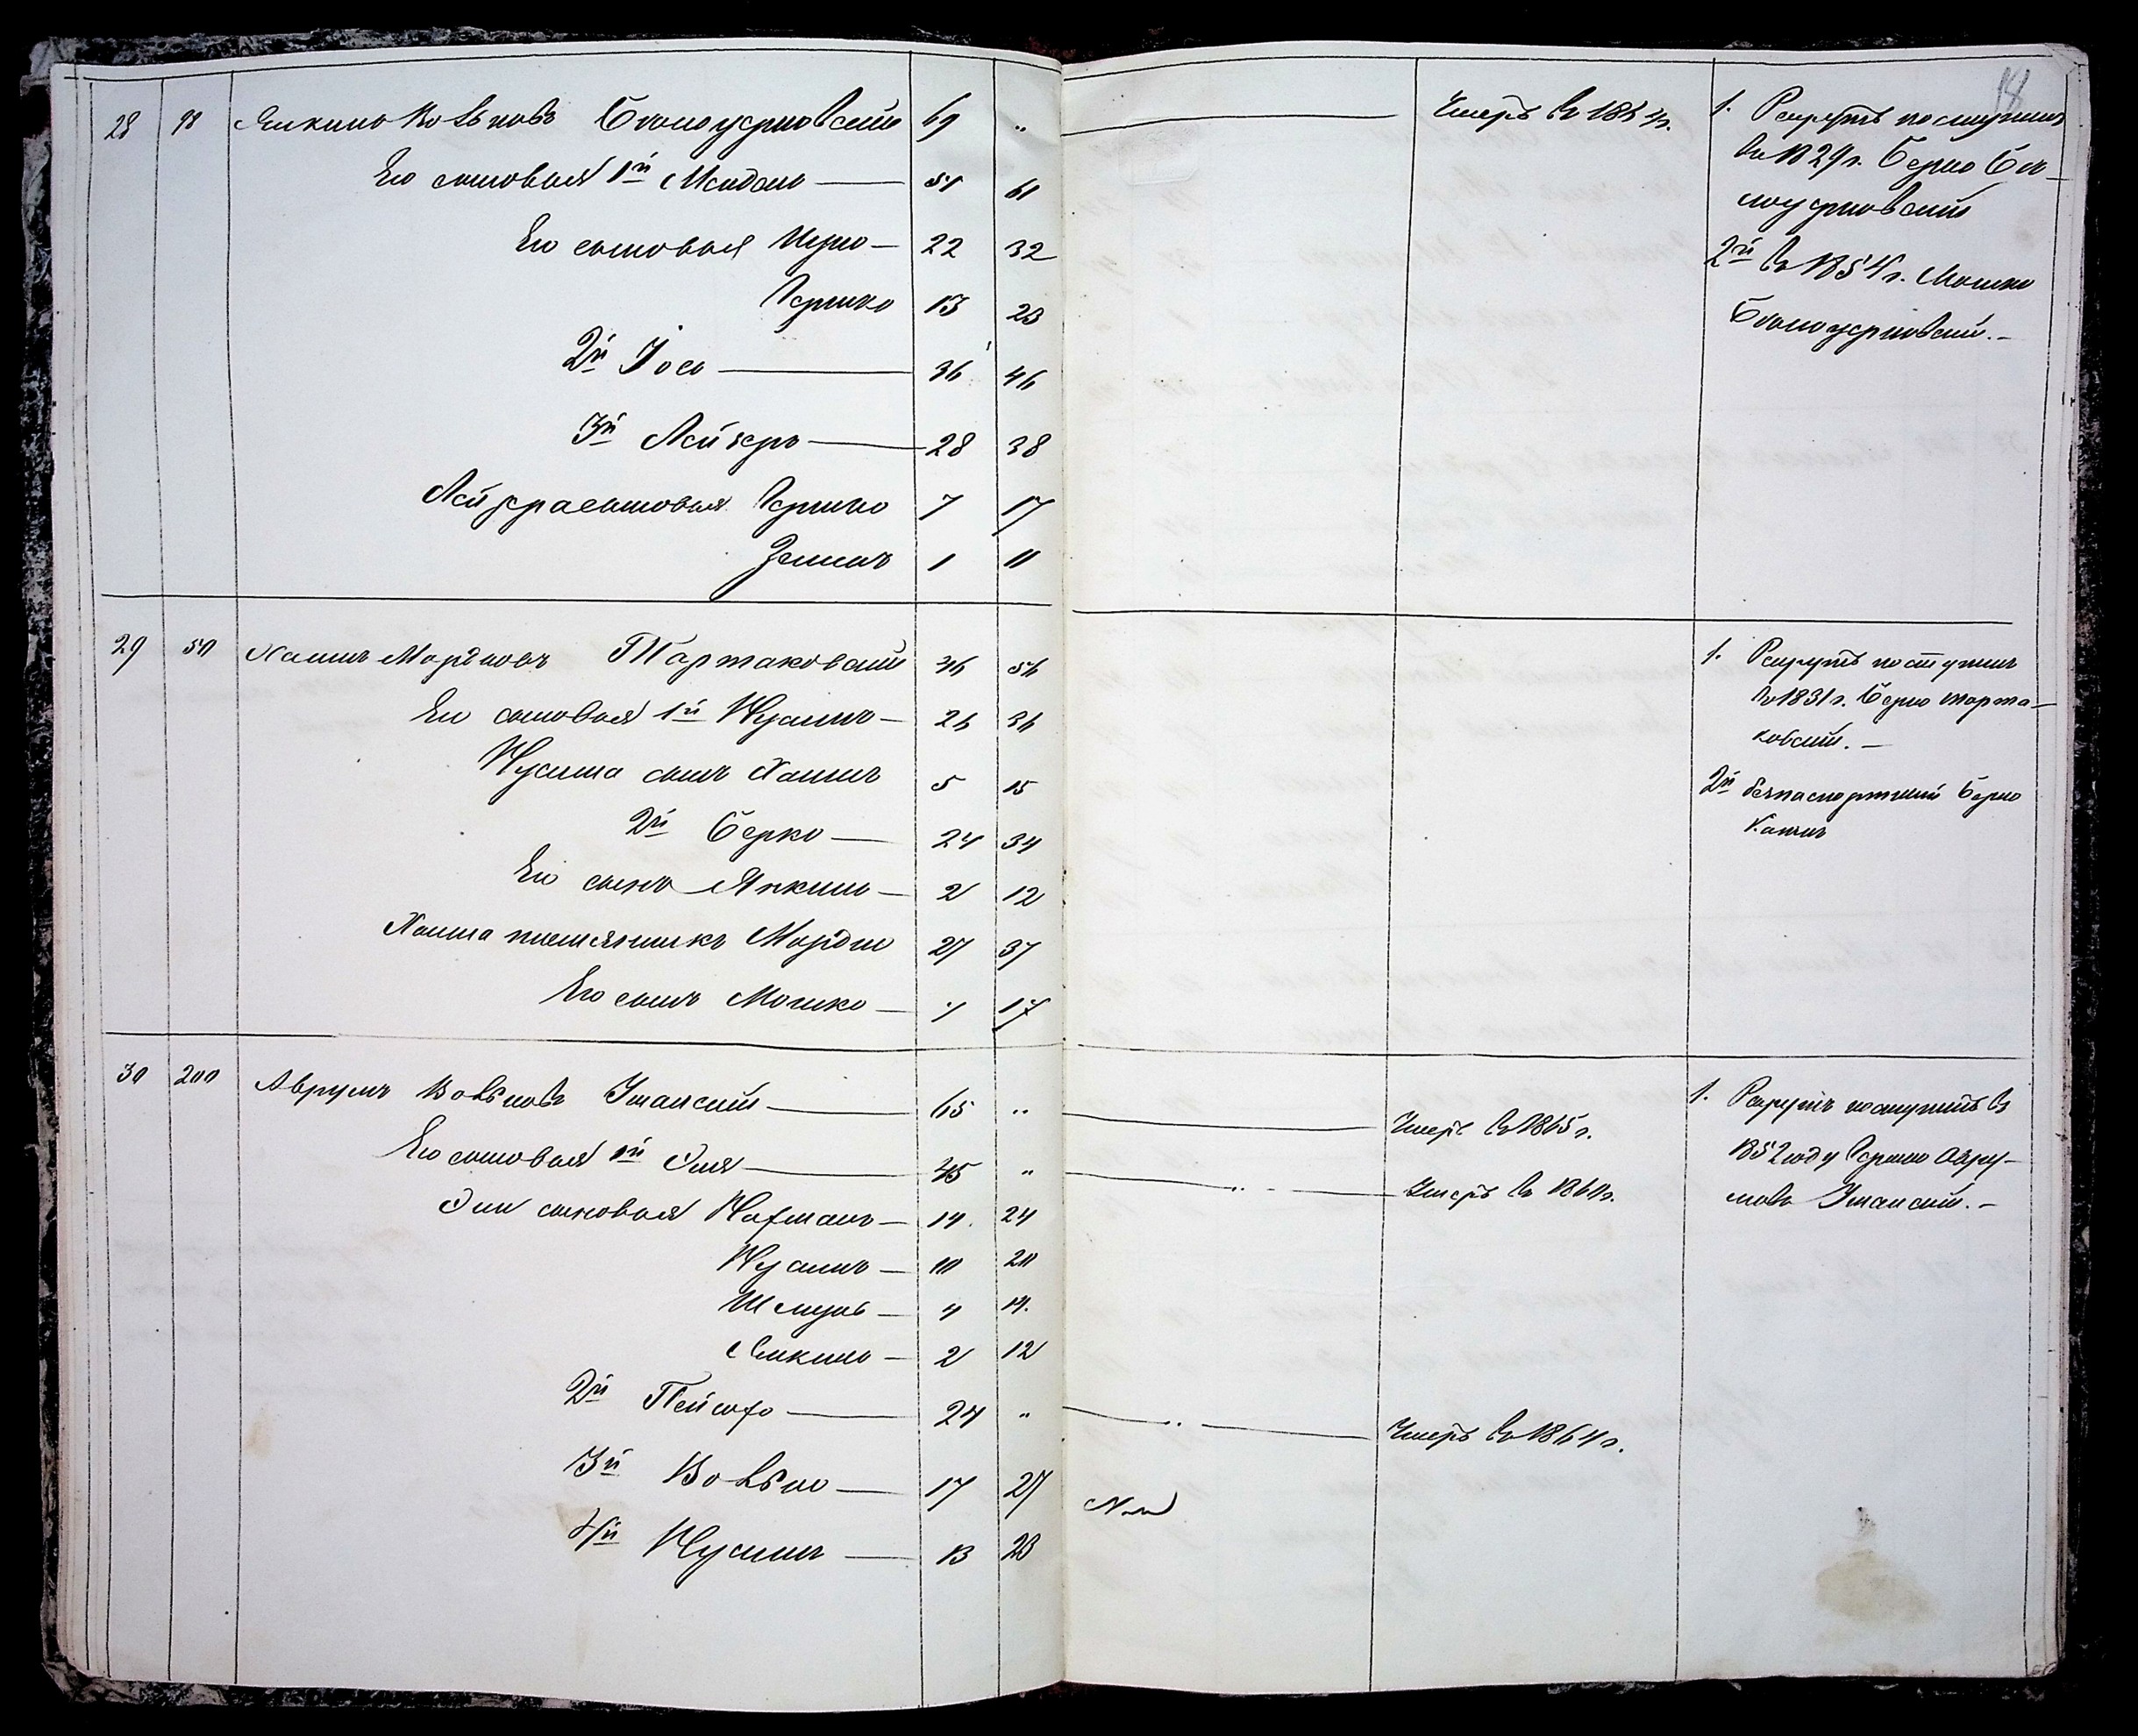 18
28 98 Янкель Вовьковъ Белоцерковскій 69 "
Умеръ въ 1864 г.
1. Рекрутъ поступилъ
въ 1829 г. Берко Бѣ-
лоцерковскій
2й въ 1854 г. Мошко
Белоцерковскій.-
Его сыновья 1й 51 61
Его сыновья 22 32
Гершко 13 23
2й Іось 36 46
3й Лейзеръ 28 38
Лейзера сыновья Гершко 7 17
1 11
29 50 Хаимъ Мордковъ Тартаковскій 46 56
1. Рекрутъ поступилъ
въ 1831 г. Берко Тарта-
ковскій.-
2й безпаспортный Берко
Хаимъ
Его сыновья 1й Нусимъ 26 36
Нусима сынъ Хаимъ 5 15
2й Берко 24 34
Его сынъ Янкель 2 12
Хаима племянникъ Мордко 27 37
Его сынъ Мошко 7 17
30 200 Аврумъ Вовьковъ Уманскій 65 "
Умеръ въ 1865 г.
1. Рекрутъ поступилъ въ
1852 году Гершко Авру-
мовъ Уманскій.-
Его сыновья 1й Эля 45 "
Умеръ въ 1860 г.
Эли сыновья Нахманъ 14 24
Нусимъ 10 20
4 14
Янкель 2 12
2й Пейсахъ 24 "
Умеръ въ 1864 г.
3й Вовько 17 27
4й Нусимъ 13 23